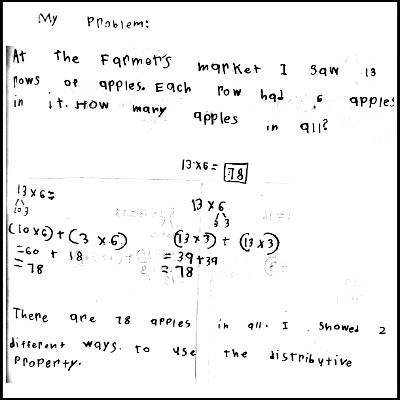 My Problem:
At the Farmer's market I saw 13
rows of apples. Each row had 6 apples
in it. How many apples in all?
13×6 = 78
13×6=
10 3
(10×6)+(3×6)
=60 + 18
=78
13×6
3 3
(13×3) + (13×3)
=39+39
=78
There are 78 apples in all. I showed 2
different ways. to use the distributive
property.